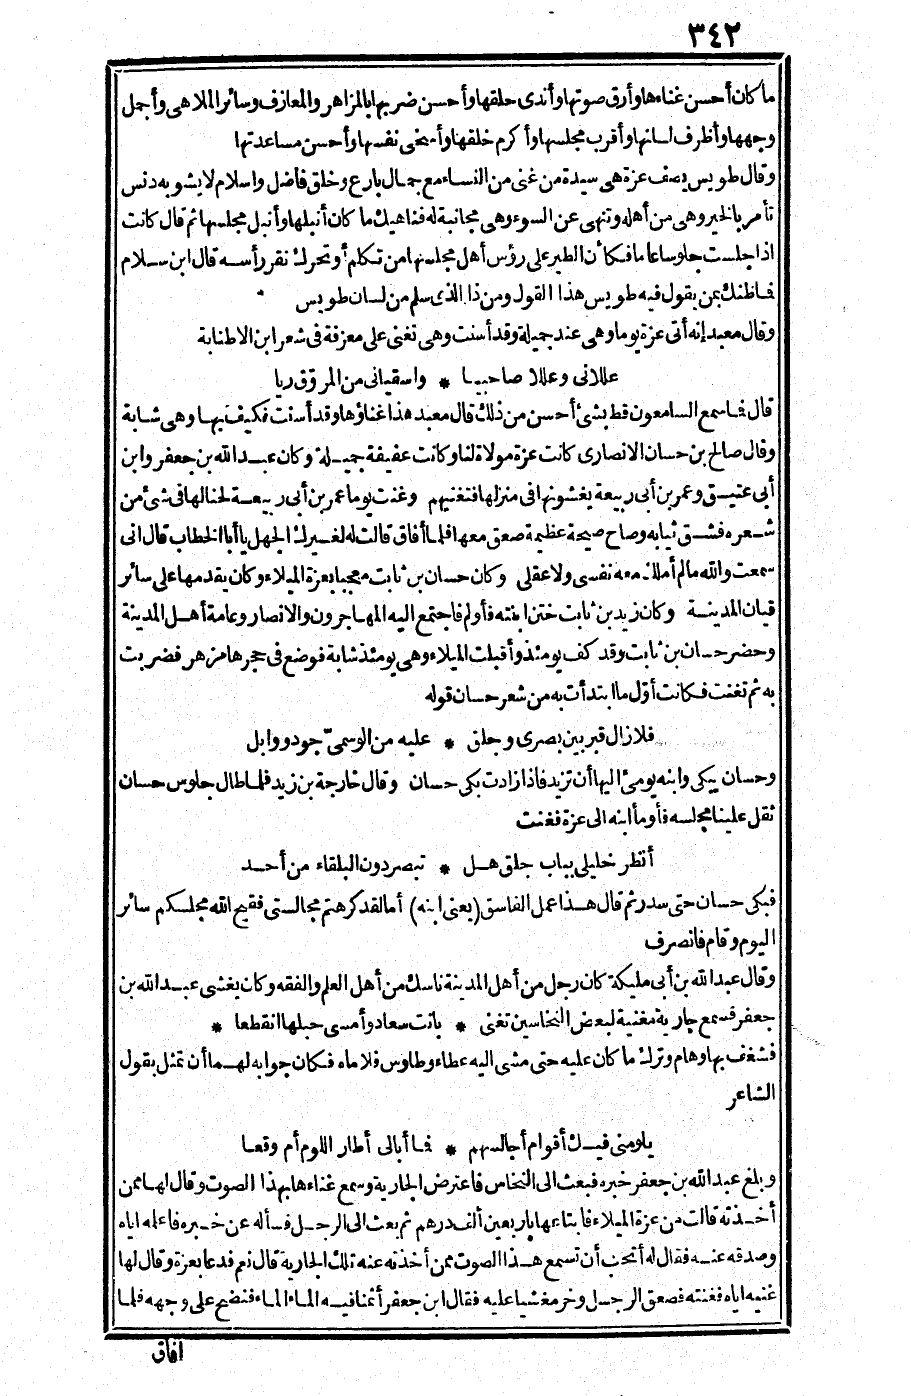 ٣٤٢
ما كان أحسن غناءها وأرق صوتها وأندى حلقها وأحسن ضربها بالمزاهر والمعازف وسائر الملاهى وأجمل
وجهها وأظرف لسانها وأقرب مجلسها وأكرم خلقها وأسخى نفسها وأحسن مساعدتها
وقال طويس يصف عزة هى سيدة من غنى من النساء مع جمال بارع وخلق فاضل واسلام لا يشوبه دنس
تأمر بالخير وهى من أهله وتنهى عن السوء وهى مجانبة له فناهيك ما كان أنبلها وأنبل مجلسها ثم قال كانت
اذا جلست جلوسا عاما فكأن الطير على رؤس أهل مجلسها من تكلم أو تحرك نقر رأسه قال ابن سلام
فما ظنك بمن يقول فيه طويس هذا القول ومن ذا الذى سلم من لسان طويس
وقال معبد إنه أتى عزة يوما وهى عند جميلة وقد أسنت وهى تغنى على معزفة فى شعر ابن الاطنابة
عللانى وعللا صاحبيا * واسقيانى من المروّق ريا
قال فما سمع السامعون قط بشئ أحسن من ذلك قال معبد هذا غناؤها وقد أسنت فكيف بها وهى شابة
وقال صالح بن حسان الانصارى كانت عزة مولاة لنا وكانت عفيفة جميلة وكان عبد الله بن جعفر وابن
أبى عتيق وعمر بن أبى ربيعة يغشونها فى منزلها فتغنيهم وغنت يوما عمر بن أبى ربيعة لحنا لها فى شئ من
شعره فشق ثيابه وصاح صيحة عظيمة صعق معها فلما أفاق قالت له لغيرك الجهل يا أبا الخطاب قال انى
سمعت والله ما لم أملك معه نفسى ولا عقلى وكان حسان بن ثابت معجبا بعزة الميلاء وكان يقدمها على سائر
قيان المدينة وكان زيد بن ثابت ختن ابنته فأولم فاجتمع اليه المهاجرون والانصار وعامة أهل المدينة
وحضر حسان بن ثابت وقد كف يومئذ وأقبلت الميلاء وهى يومئذ شابة فوضع فى حجرها مزهر فضربت
به ثم تغنت فكانت أوّل ما ابتدأت به من شعر حسان قوله
فلا زال قبر بين بصرى وجلق * عليه من الوسمىّ جود ووابل
وحسان يبكى وابنه يومئ اليها أن تزيد فاذا زادت بكى حسان وقال خارجة بن زيد فلما طال جلوس حسان
ثقل علينا مجلسه فأومأ ابنه الى عزة فغنت
أنظر خليلى بباب جلق هل * تبصر دون البلقاء من أحد
فبكى حسان حتى سدر ثم قال هذا عمل الفاسق (يعنى ابنه) أما لقد كرهتم مجالستى فقبح الله مجلسكم سائر
اليوم وقام فانصرف
وقال عبد الله بن أبى مليكة كان رجل من أهل المدينة ناسك من أهل العلم والفقه وكان يغشى عبد الله بن
جعفر فسمع جارية مغنية لبعض النخاسين تغنى * بانت سعاد وأمسى حبلها انقطعا *
فشغف بها وهام وترك ما كان عليه حتى مشى اليه عطاء وطاوس فلاماه فكان جوابه لهما أن تمثل بقول
الشاعر
يلومنى فيك أقوام أجالسهم * فما أبالى أطار اللوم أم وقعا
وبلغ عبد الله بن جعفر خبره فبعث الى النخاس فاعترض الجارية وسمع غناءها بهذا الصوت وقال لها ممن
أخذته قالت من عزة الميلاء فابتاعها بأربعين ألف درهم ثم بعث الى الرجل فسأله عن خبره فأعلمه اياه
وصدقه عنه فقال له أتحب أن تسمع هذا الصوت ممن أخذته عنه تلك الجارية قال نعم فدعا بعزة وقال لها
غنيه اياه فغنته فصعق الرجل وخر مغشيا عليه فقال ابن جعفر أثمنا فيه الماء الماء فنضح على وجهه فلما
افاق